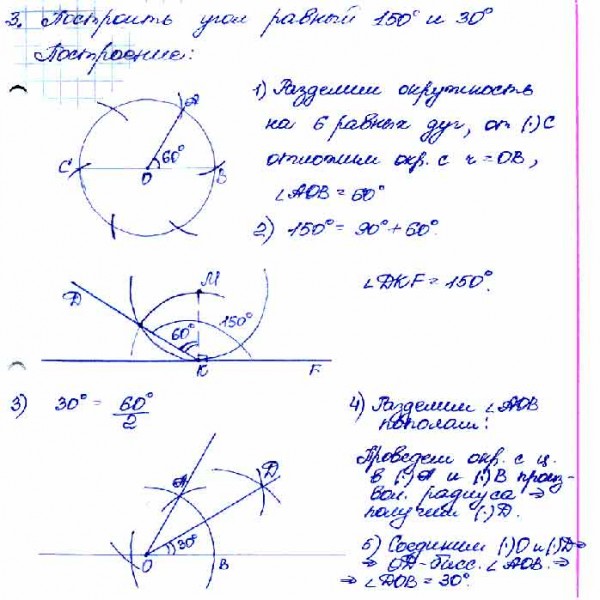 3. Построить угол равный 150° и 30°
Построение:
1) Разделим окружность
на 6 равных дуг, от (·)C
отложим окр. с r = OB,
∠AOB = 60°
A
C
O
60°
B
2) 150° = 90° + 60°.
∠DKF = 150°.
D
M
60°
150°
K
F
3) 30° = 60°/2
A
D
30°
O
B
4) Разделим ∠AOB
пополам:
Проведем окр. с ц.
в (·)A и (·)B произ-
вол. радиуса ⇒
получим (·)D.
5) Соединим (·)O и (·)D ⇒
⇒ OD - бисс. ∠AOB. ⇒
⇒ ∠DOB = 30°.